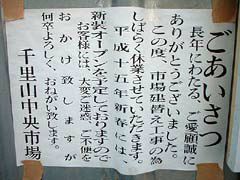 ごあいさつ
長年にわたる、ご愛顧誠に
ありがとうございました。
この度、市場建替え工事の為
しばらく休業させていただきます。
平成十五年新春には、
新装オープンを予定しておりますので
お客様には、大変ご迷惑、ご不便を
おかけ致しますが
何卒よろしく、おねがい致します。
千里山中央市場